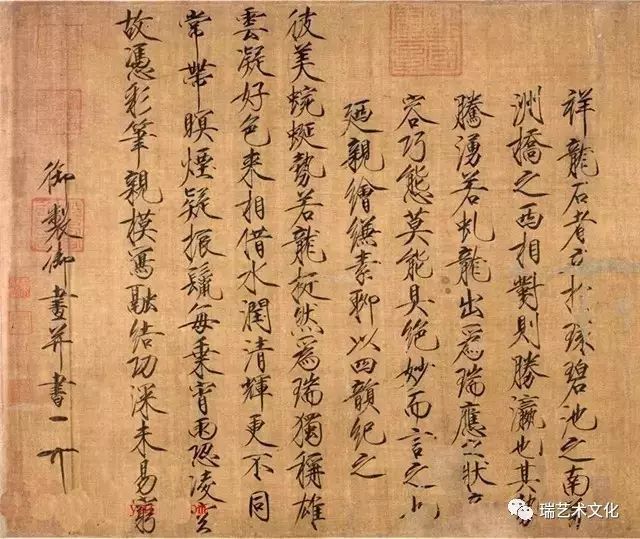 祥龍石者立於環碧池之南芳
洲橋之西相對則勝瀛也其勢
騰湧若虬龍出爲瑞應之狀奇
容巧態莫能具絕妙而言之也
廼親繪縑素聊以四韻紀之
彼美蜿蜒勢若龍挺然爲瑞獨稱雄
雲凝好色來相借水潤清輝更不同
常帶暝煙疑振鬣每乘宵雨恐凌空
故憑彩筆親模寫融結功深未易窮
御製御畫并書
瑞艺术文化